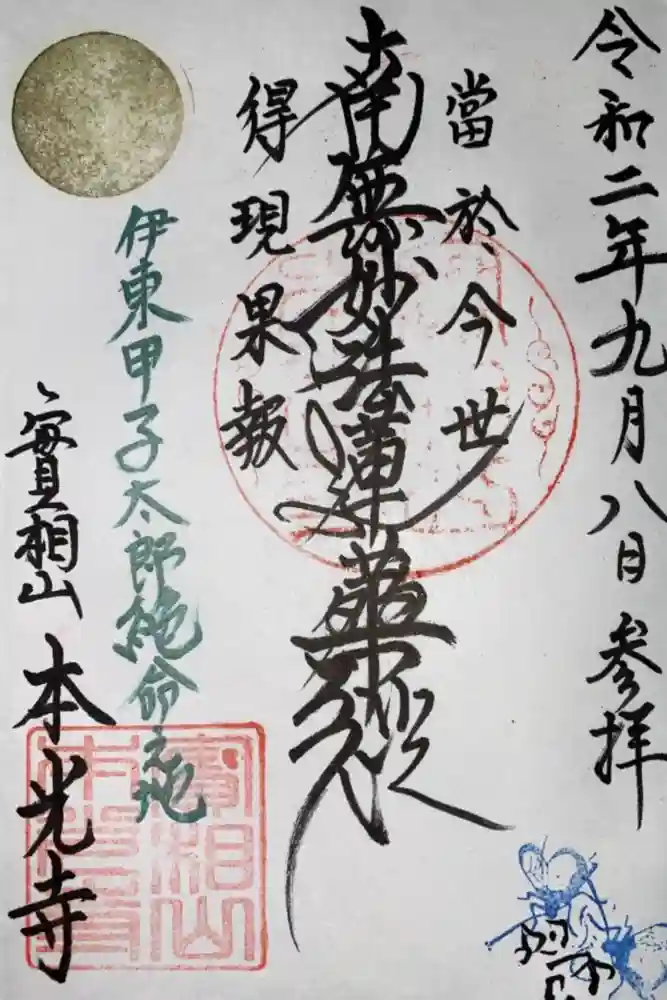 令和二年九月八日参拝
當於今世
南無妙法蓮華経
得現果報
伊東甲子太郎絶命之地
實相山
本光寺
實相山
本光寺